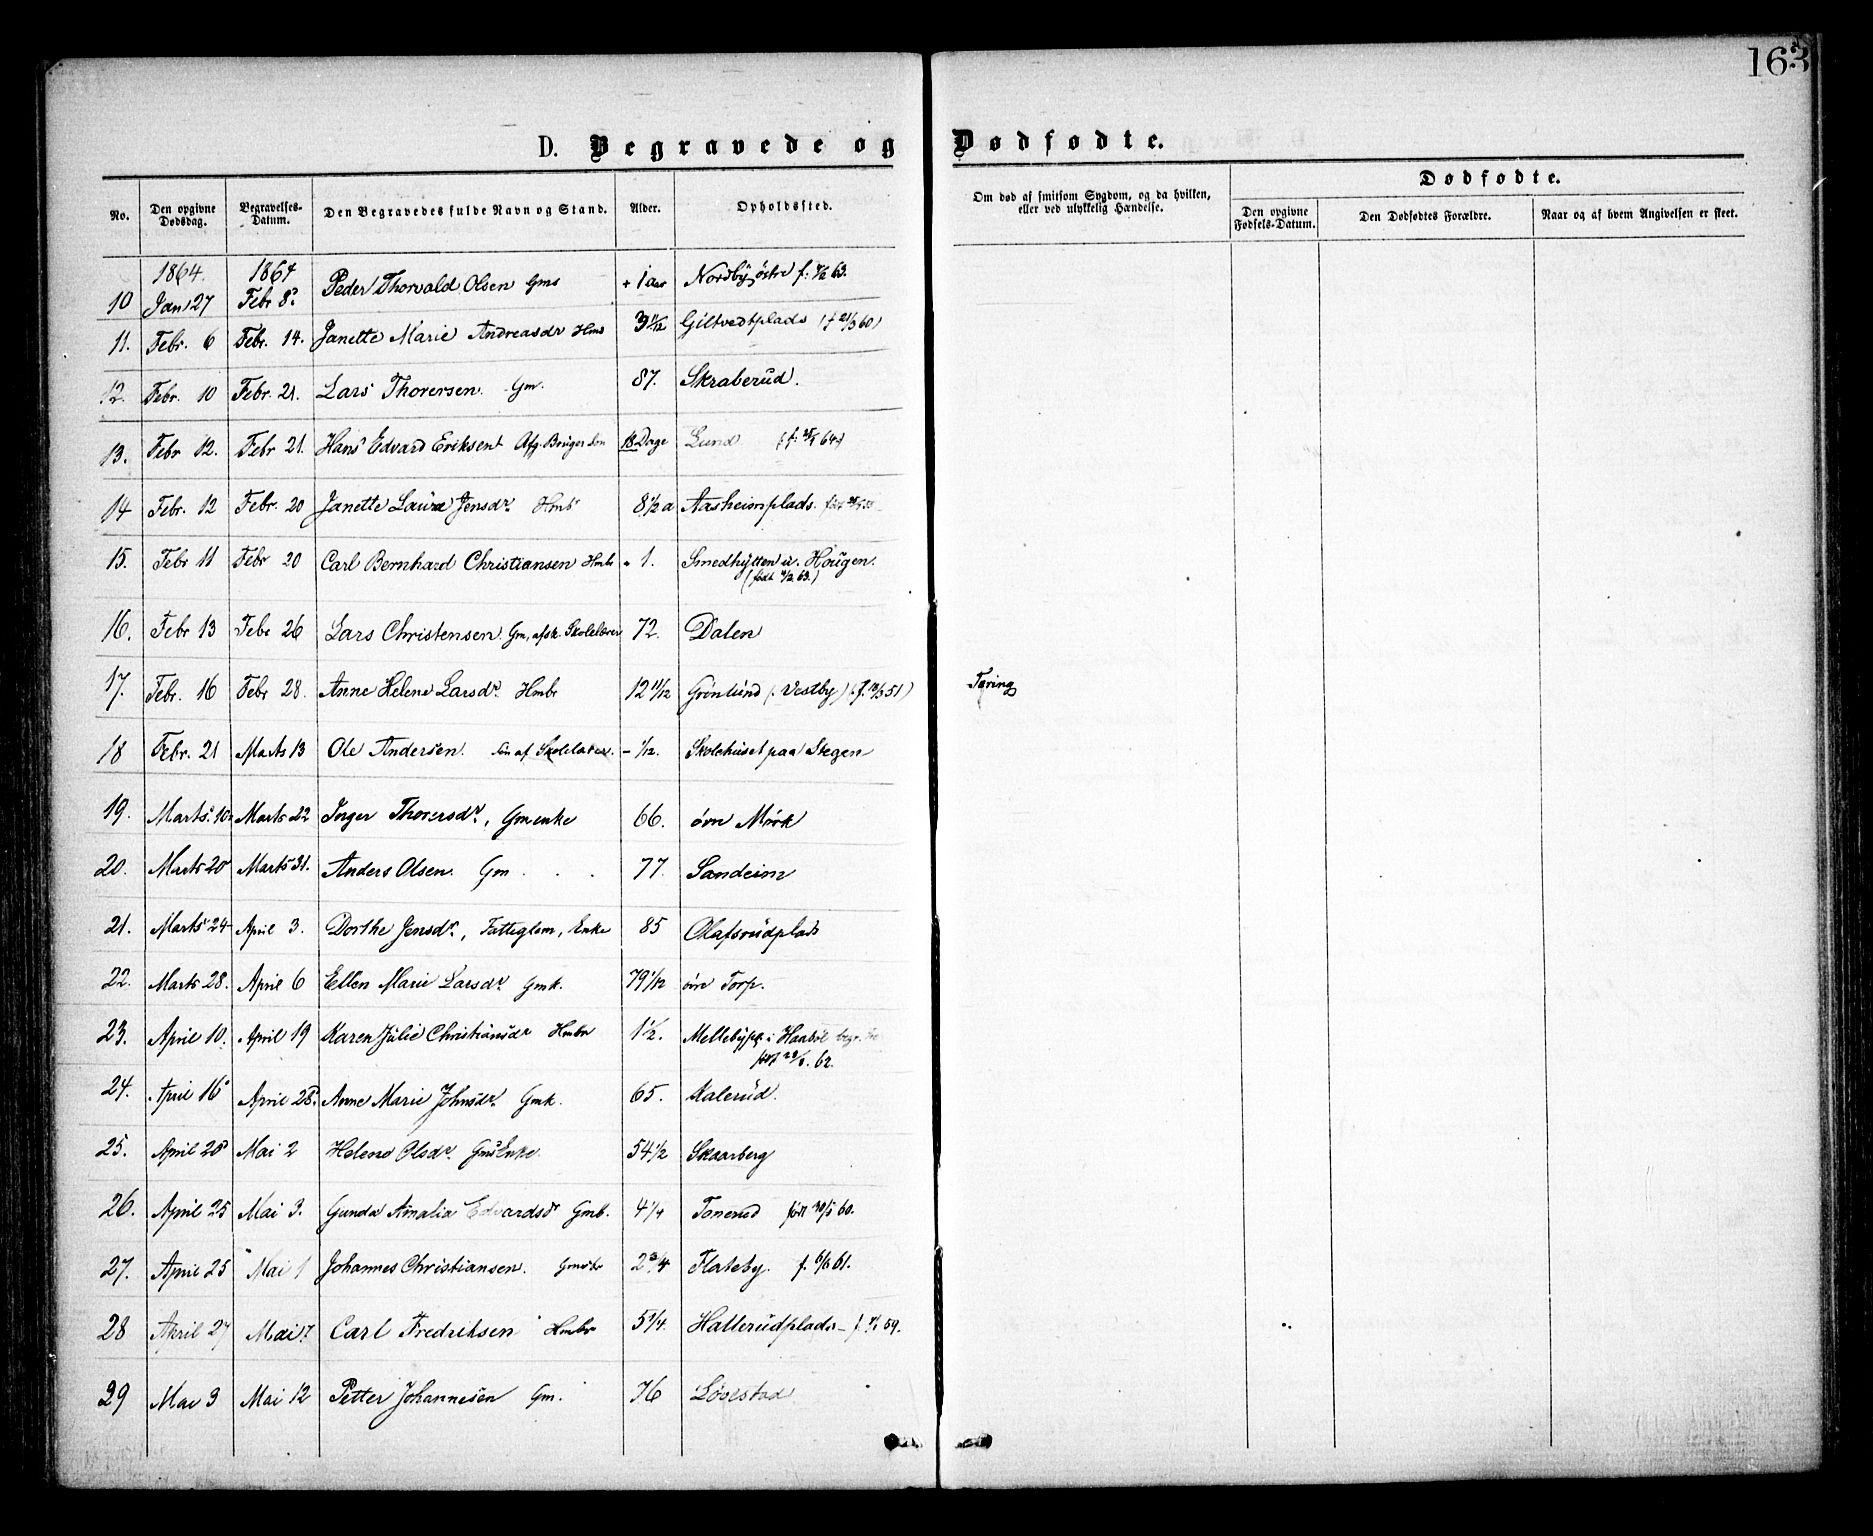 163
D. Begravede og Dødfødte.
No. Den opgivne Dødsdag. Begravelses-Datum. Den Begravedes fulde Navn og Stand. Alder. Opholdssted. Om død af smitsom Sygdom, og da hvilken, eller ved ulykkelig Hændelse. Dødfødte.
Den opgivne Fødsels-Datum. Den Dødfødtes Forældre. Naar og af hvem Angivelsen er skeet.
1864. 1864
10 Jan 27 Febr 8 Peder Thorvald Olsen Gms + 1 aar Nordby østre f. 63.
11. Febr. 6 Febr. 14. Janette Marie Andreasdr Hms 3 11/12 Giltvedtplads (f 21/3 60)
12. Febr. 10 Febr. 21. Lars Thorersen. Gm. 87. Skraberud.
13. Febr 12. Febr 21. Hans Edvard Eriksen Afg. Bruger Søn 18 Dage Lund f: 64
14 Febr. 12 Febr. 20 Janette Laura Jensdr. Hmb 8 1/2 a Aasheimplads. født
15. Febr 11 Febr 20 Carl Bernhard Christiansen Hmbr 1. Smedhytten u. Hougen.
(født 63.)
16. Febr 13 Febr 26 Lars Christensen. Gm, afsk. Skolelærer 72. Dalen
17. Febr. 16 Febr 28. Anne Helene Larsdr. Hmbr 12 11/12 Grönlund (Vestby) (f. 51) Tæring
18 Febr. 21 Marts 13 Ole Andersen. Søn af Skolelærer. - 1/12. Skolehuset paa Stegen
19. Marts 10 Marts 22 Inger Thorersdr., Gmenke 66. övn Mörk
20. Marts 20 Marts 31. Anders Olsen. Gm 77. Sandeim
21. Marts 24 April 3. Dorthe Jensdr., Fattiglem, Enke 85 Olafsrudplads
22. Marts 28. April 6 Ellen Marie Larsdr. Gmk. 79 1/12 övre Torp.
23. April 10. April 19 Karen Julie Christiansdr Hmbr 1 1/2. Mellebypl. i Haabøl begr.
født 62.
24. April 16 April 28. Anne Marie Johnsdr. Gmk. 65. Kalerud.
25. April 20 Mai 2 Helene Olsdr. Gms Enke. 54 1/2 Skaarberg
26. April 25 Mai 3. Gunda Amalia Edvardsdr Gmb. 4 1/4 Tonerud født 60.
27. April 25 Mai 1 Johannes Christiansen. Gmsbr 2 3/4 Flateby. f. 61.
28 April 27 Mai 7. Carl Fredriksen Hmbr 5 1/4. Hallerudplads f. 59.
29 Mai 3 Mai 12 Petter Johannesen Gm. 76 Løvestad